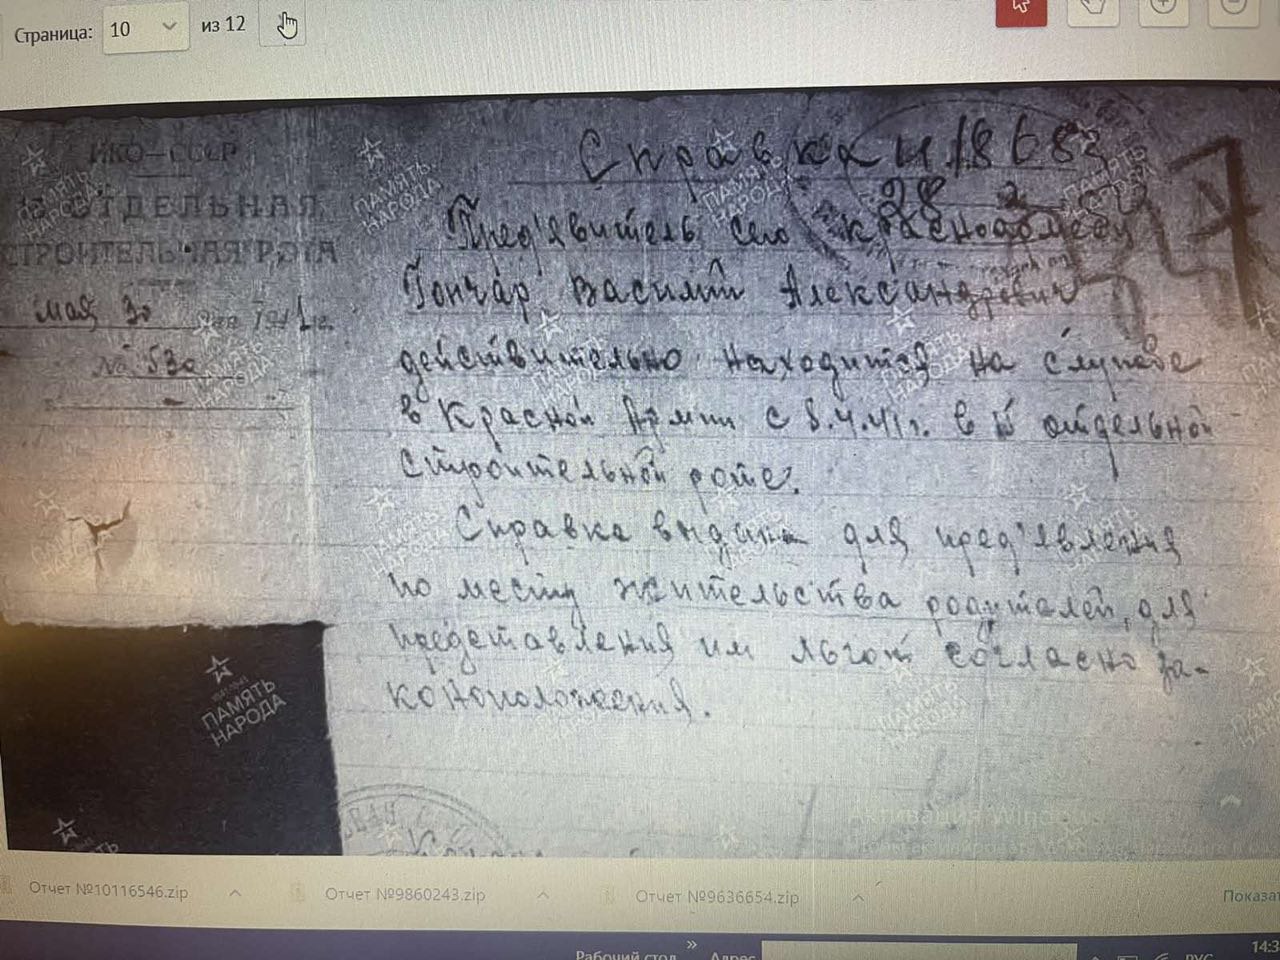 Страница: 10 из 12
НКО—СССР
ОТДЕЛЬНАЯ
СТРОИТЕЛЬНАЯ РОТА
мая 30 дня 1941 г.
№ 530
Справка
18683
28 2
Пред'явитель сего красноармеец
Гончар Василий Александрович
действительно находится на службе
в Красной Армии с 8.4.41 г. в отдельной
строительной роте.
Справка выдана для пред'явления
по месту жительства родителей, для
представления им льгот согласно за-
коноположения.
ПАМЯТЬ
НАРОДА
Активация Windows
Отчет №10116546.zip
Отчет №9860243.zip
Отчет №9636654.zip
Показат
Рабочий стол
»
Адрес
РУС
14:3